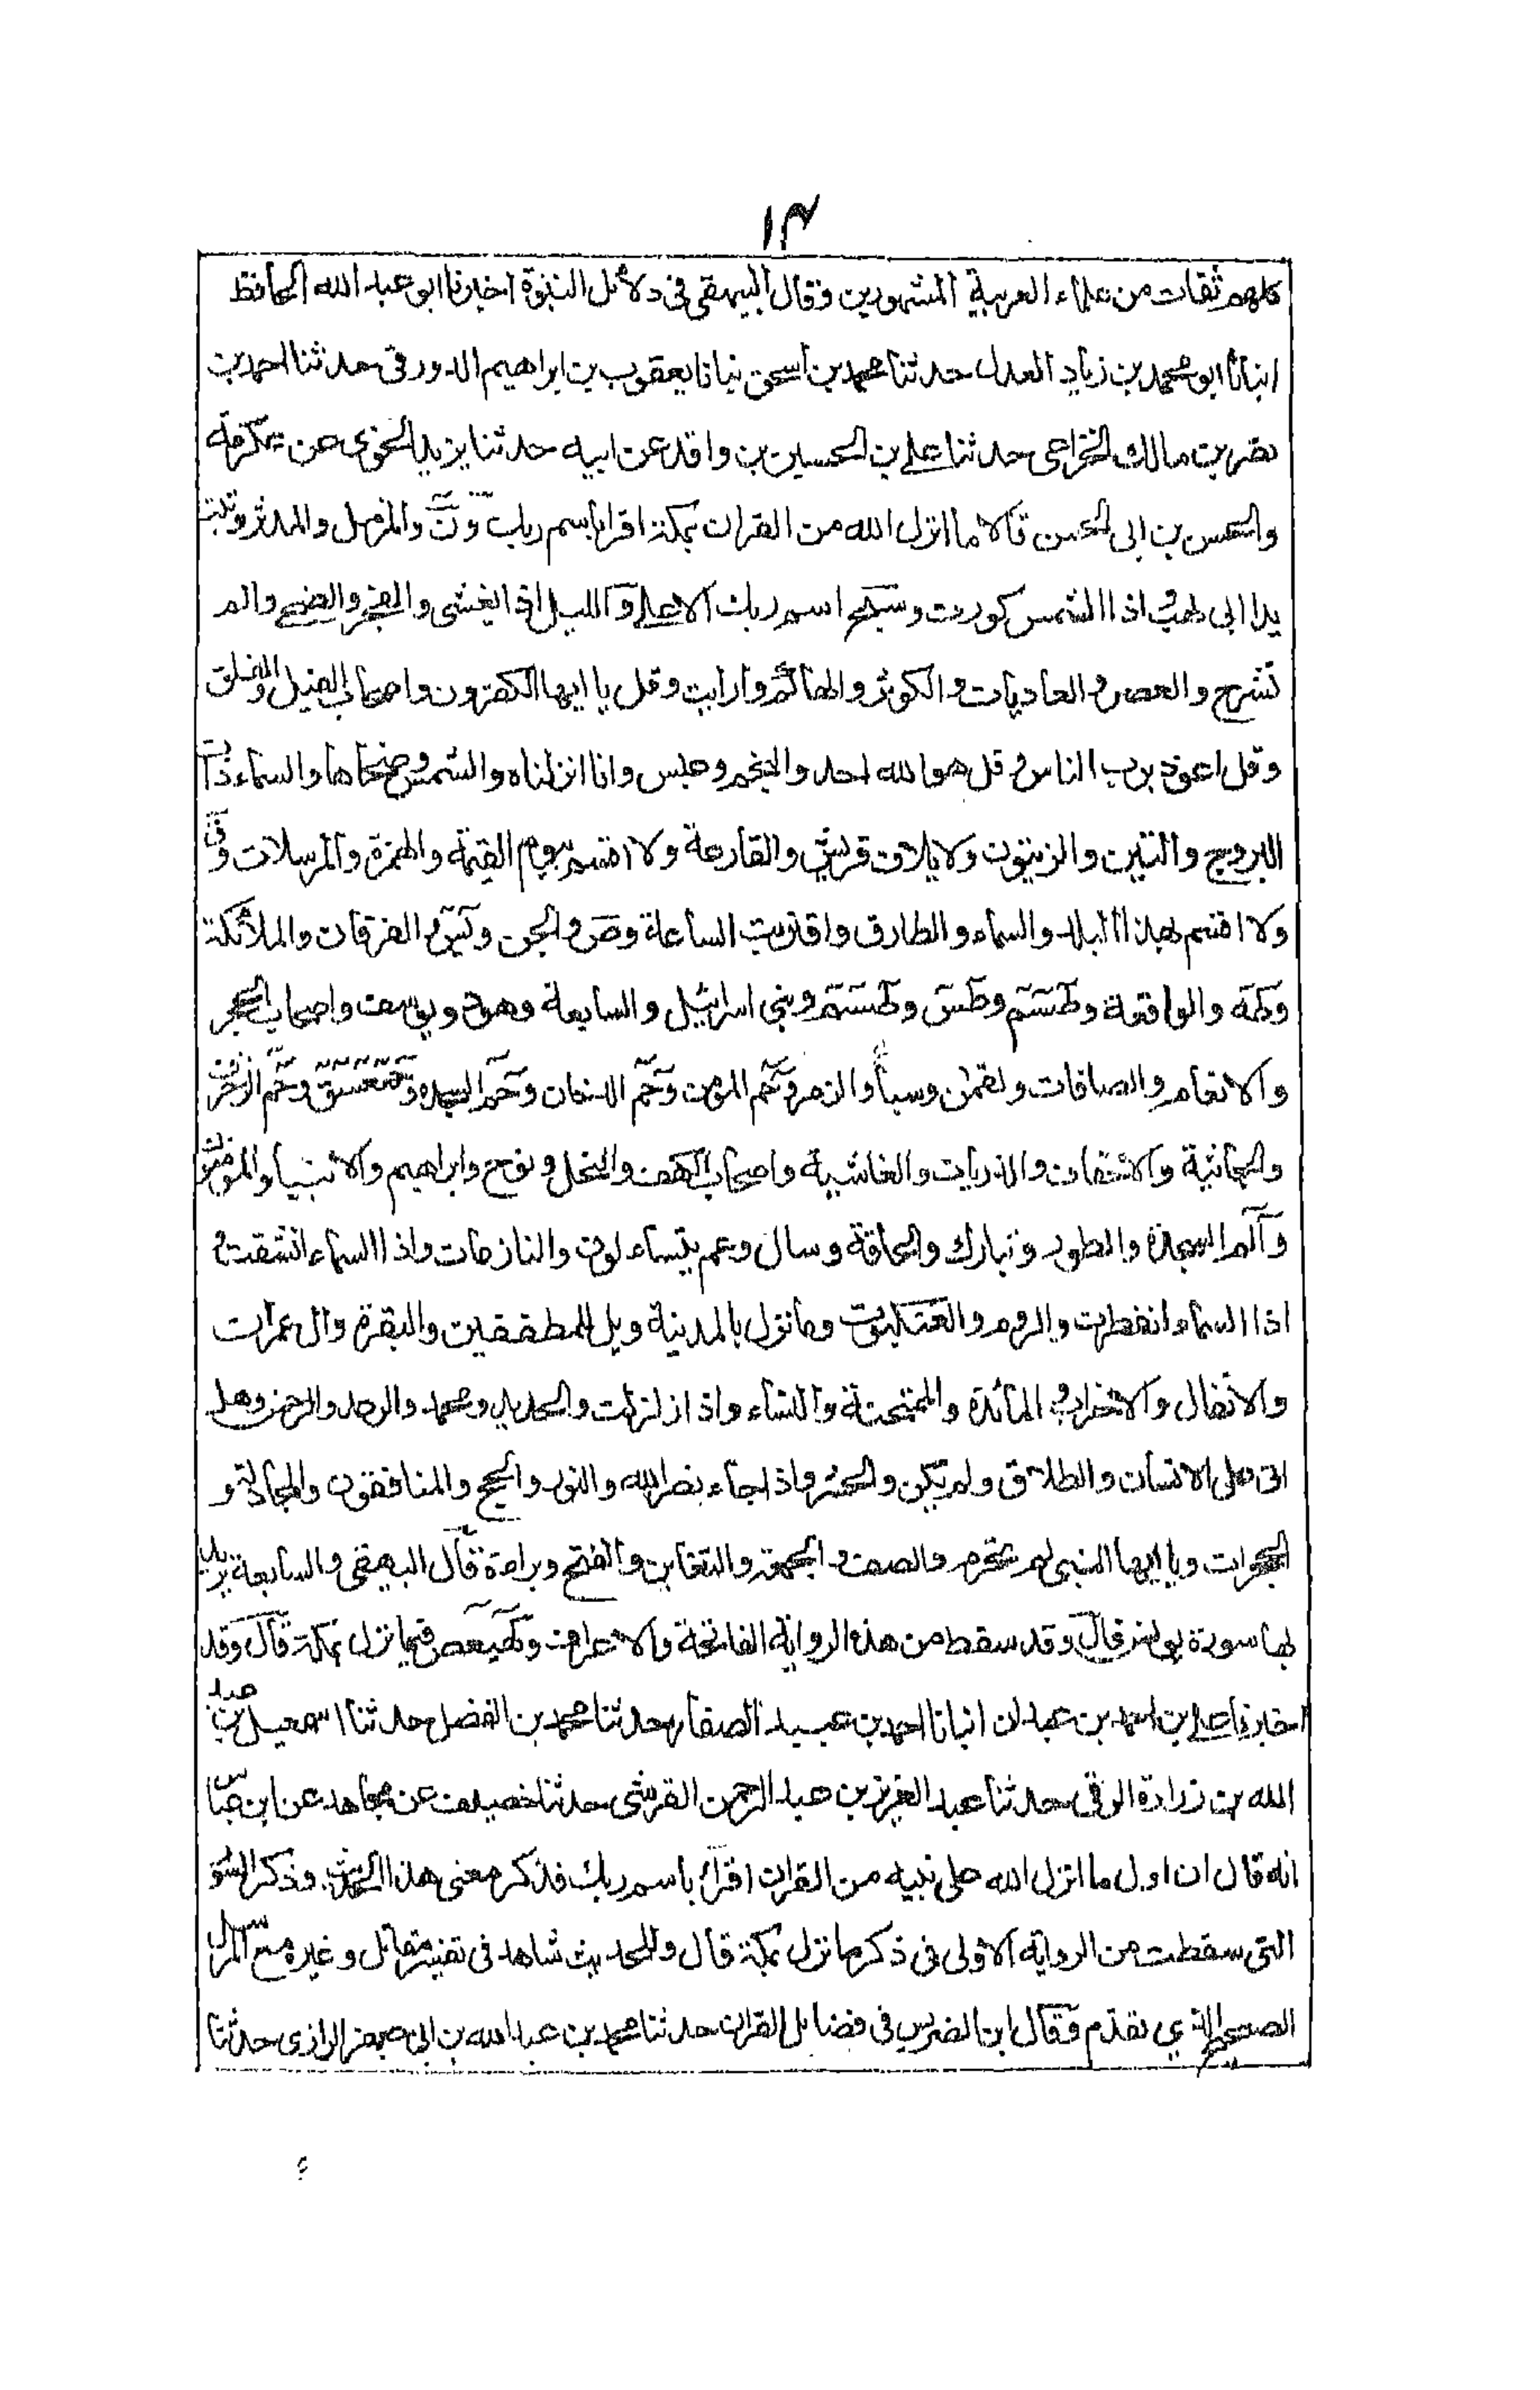 ١٣
كلهم ثقات من علماء العربية المشهورين وقال البيهقي في دلائل النبوة اخبرنا ابو عبد الله الحافظ
انبأنا ابو محمد بن زياد العدل حدثنا محمد بن اسحق نبانا يعقوب بن ابراهيم الدورقي حدثنا احمد بن
نصر بن مالك الخزاعي حدثنا علي بن الحسين بن واقد عن ابيه حدثنا يزيد النحوي عن عكرمة
والحسن بن ابي الحسن قالا ما انزل الله من القران بمكة اقرا باسم ربك ون والمزمل والمدثر وتبت
يدا ابي لهب واذا الشمس كورت وسبح اسم ربك الاعلى والليل اذا يغشى والفجر والضحى والم
نشرح والعصر والعاديات والكوثر والهاكم وارايت وقل يا ايها الكفرون واصحاب الفيل والفلق
وقل اعوذ برب الناس وقل هو الله احد والنجم وعبس وانا انزلناه والشمس وضحاها والسماء ذات
البروج والتين والزيتون ولايلاف قريش والقارعة ولا اقسم بيوم القيمة والهمزة والمرسلات وق
ولا اقسم بهذا البلد والسماء والطارق واقتربت الساعة وص والجن ويس والفرقان والملائكة
وطه والواقعة وطسم وطس وطسم وبني اسرائيل والسابعة وهود ويوسف واصحاب الحجر
والانعام والصافات ولقمن وسبأ والزمر وحم المؤمن وحم الدخان وحم السجدة وحمعسق وحم الزخرف
والجاثية والاحقاف والذريات والغاشية واصحاب الكهف والنحل ونوح وابراهيم والانبياء والمؤمنون
والم السجدة والطور وتبارك والحاقة وسال وعم يتساءلون والنازعات واذا السماء انشقت و
اذا السماء انفطرت والروم والعنكبوت وما نزل بالمدينة ويل للمطففين والبقرة وال عمران
والانفال والاحزاب والمائدة والممتحنة والنساء واذا زلزلت والحديد ومحمد والرعد والرحمن وهل
اتى على الانسان والطلاق ولم يكن والحشر واذا جاء نصر الله والنور والحج والمنافقون والمجادلة و
الحجرات ويا ايها النبي لم تحرم والصف والجمعة والتغابن والفتح وبراءة قال البيهقي والسابعة يريد
بها سورة يونس قال وقد سقط من هذه الرواية الفاتحة والاعراف وكهيعص فيما نزل بمكة قال وقد
اخبرنا علي بن احمد بن عبدان انبانا احمد بن عبيد الصفار حدثنا محمد بن الفضل حدثنا اسمعيل بن عبد
الله بن زرارة الرقي حدثنا عبد العزيز بن عبد الرحمن القرشي حدثنا خصيف عن مجاهد عن ابن عباس
انه قال ان اول ما انزل الله على نبيه من القران اقرأ باسم ربك فذكر معنى هذا الحديث وذكر السور
التي سقطت من الرواية الاولى في ذكر ما نزل بمكة قال وللحديث شاهد في تفسير مقاتل وغيره مع المرسل
الصحيح الذي تقدم وقال ابن الضريس في فضايل القران حدثنا محمد بن عبد الله بن ابي جعفر الرازي حدثنا